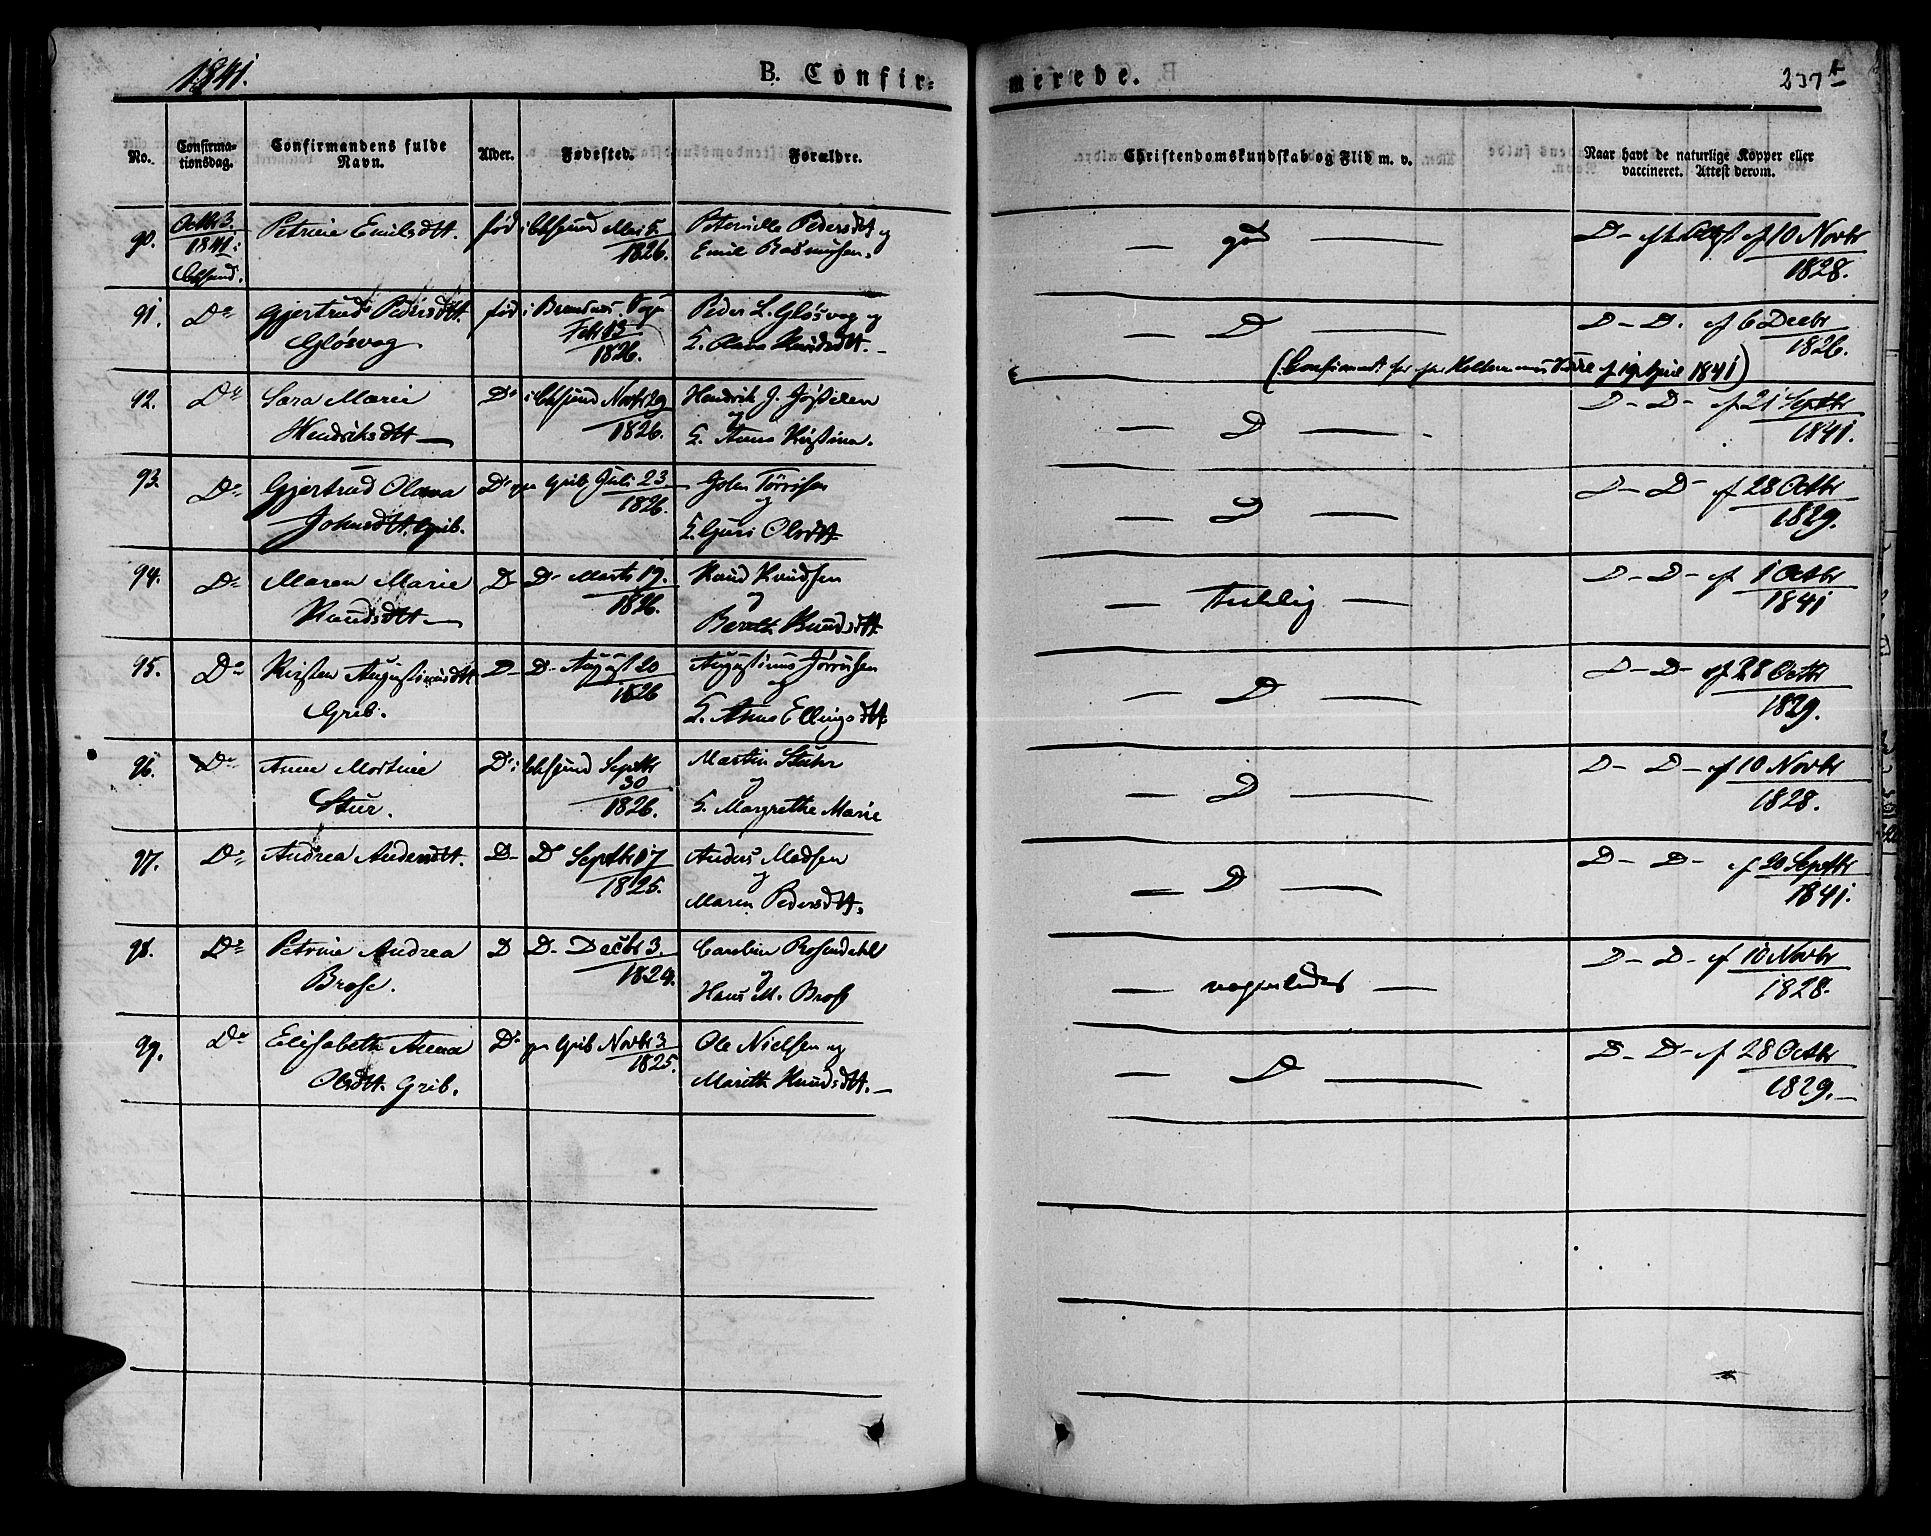 1841.
B. Confir=
merede.
237
No.
Confirma=
tionsdag.
Confirmandens fulde
Navn.
Alder.
Fødested.
Forældre.
Christendomskundskab og Flid m. v.
Naar havt de naturlige Kopper eller
vaccineret. Attest derom.
90.
Octbr 3.
1841.
Petrine Emilsdtt.
fød i
Mai 5.
1826.
Peternille Pedersdtt og
Emil Rasmussen.
— god —
D- 10 Novbr
1828.
91.
Do
Gjertrud Pedersdtt.
Gløsvog.
fød i
Febr 13
1826.
Peder L. Gløsvog og
H. Olava Knudsdtt.
— D —
D- D. af 6 Decbr
1826.
1841)
92.
Do
Sara Marie
Hendriksdtt
Do i
Novbr 29
1826.
Hendrik J.
og
H. Anna Kirstina.
— D —
D- D- af 21 Septbr
1841.
93.
Do
Gjertrud Olava
Johnsdtt. Grib.
Do
Grib Juli 23
1826.
John Torrisen
og
H. Guri Olsdtt
— D —
D- D- af 28 Octbr
1829.
94.
Do
Maren Marie
Knudsdtt
D-
D- Marts 19.
1826.
Knud Knudsen
og
Bereth Knudsdtt
— —
D- D- af 1 Octbr
1841
95.
Do
Kirsten Augustinusdtt
Grib.
D-
D- August 20
1826
Augustinus Jørrisen
og
H. Anne Ellingsdtt.
— D —
D- D- af 28 Octbr
1829.
96.
Do
Anne Martine
Stur.
Do i
Septbr
30
1826.
Martin Stuhr
og
H. Margrethe Marie
— D —
D- D- af 10 Novbr
1828.
97.
Do
Andrea Andersdtt.
D-
Do Septbr 17
1825.
Anders Madsen
og
Maren Pedersdtt.
— D —
D- D- af 20 Septbr
1841.
98.
Do
Petrine Andrea
Brose.
D
D- Decbr 3.
1824.
Carolien Rosendahl
og
Hans M. Brose
— —
D- D- af 10 Novbr
1828.
99.
Do
Elisabeth Anna
Olsdtt. Grib.
Do
Grib Novbr 3
1825.
Ole Nielsen og
Marith Knudsdtt.
— D —
D- D- af 28 Octbr
1829.